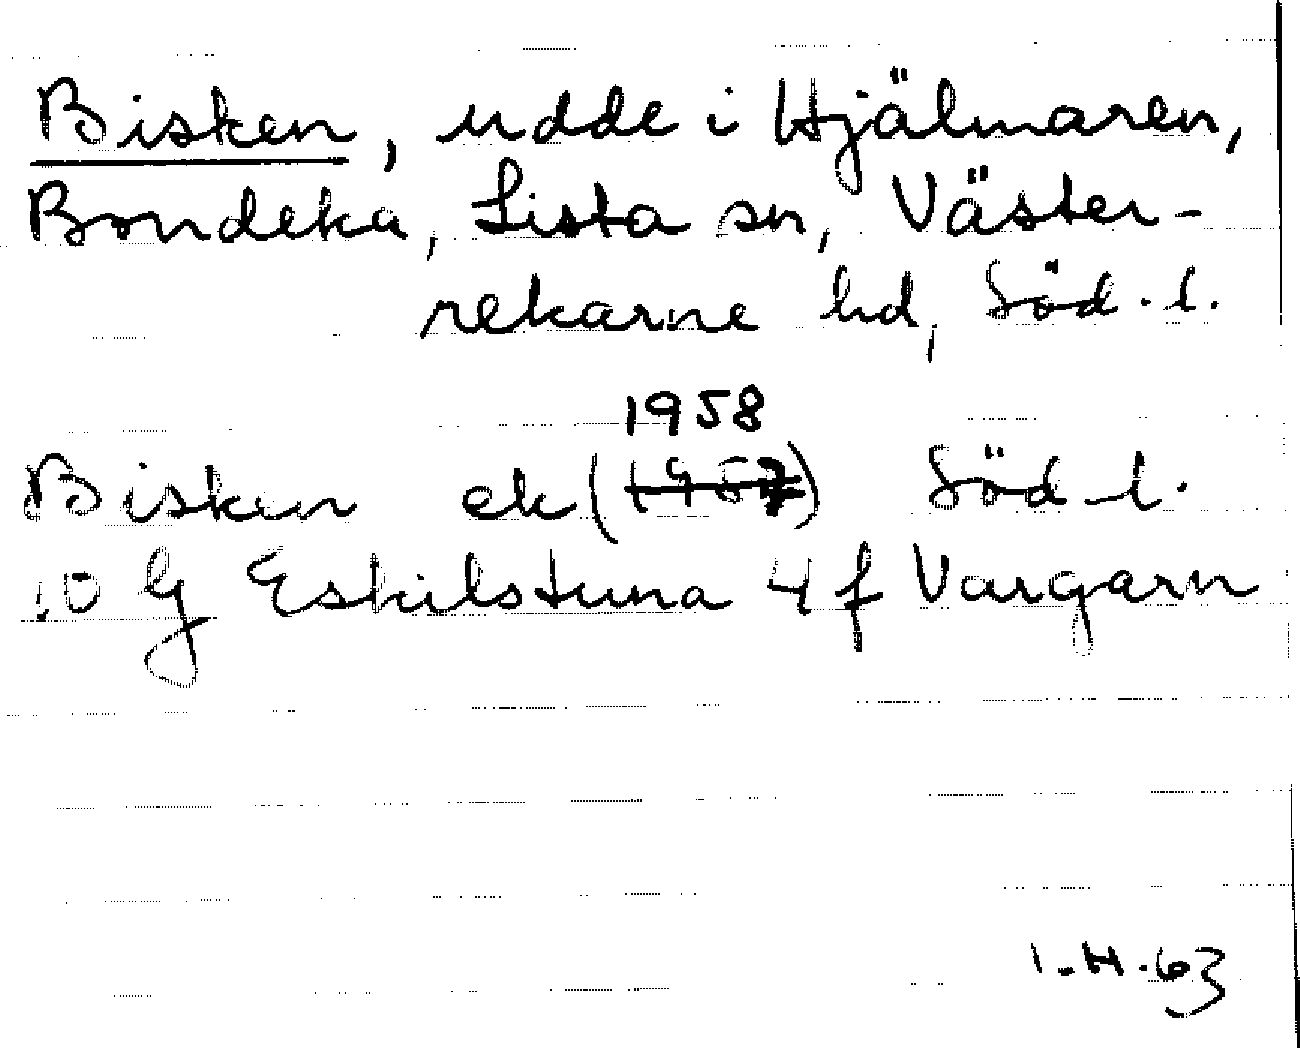 Bisken, udde i Hjälmaren,
Bondeka, Lista sn, Väster-
rekarne hd, Söd. l.
1958
Bisken ek (1957) Söd. l.
10 G Eskilstuna 4 f Vargarn
I.H.63